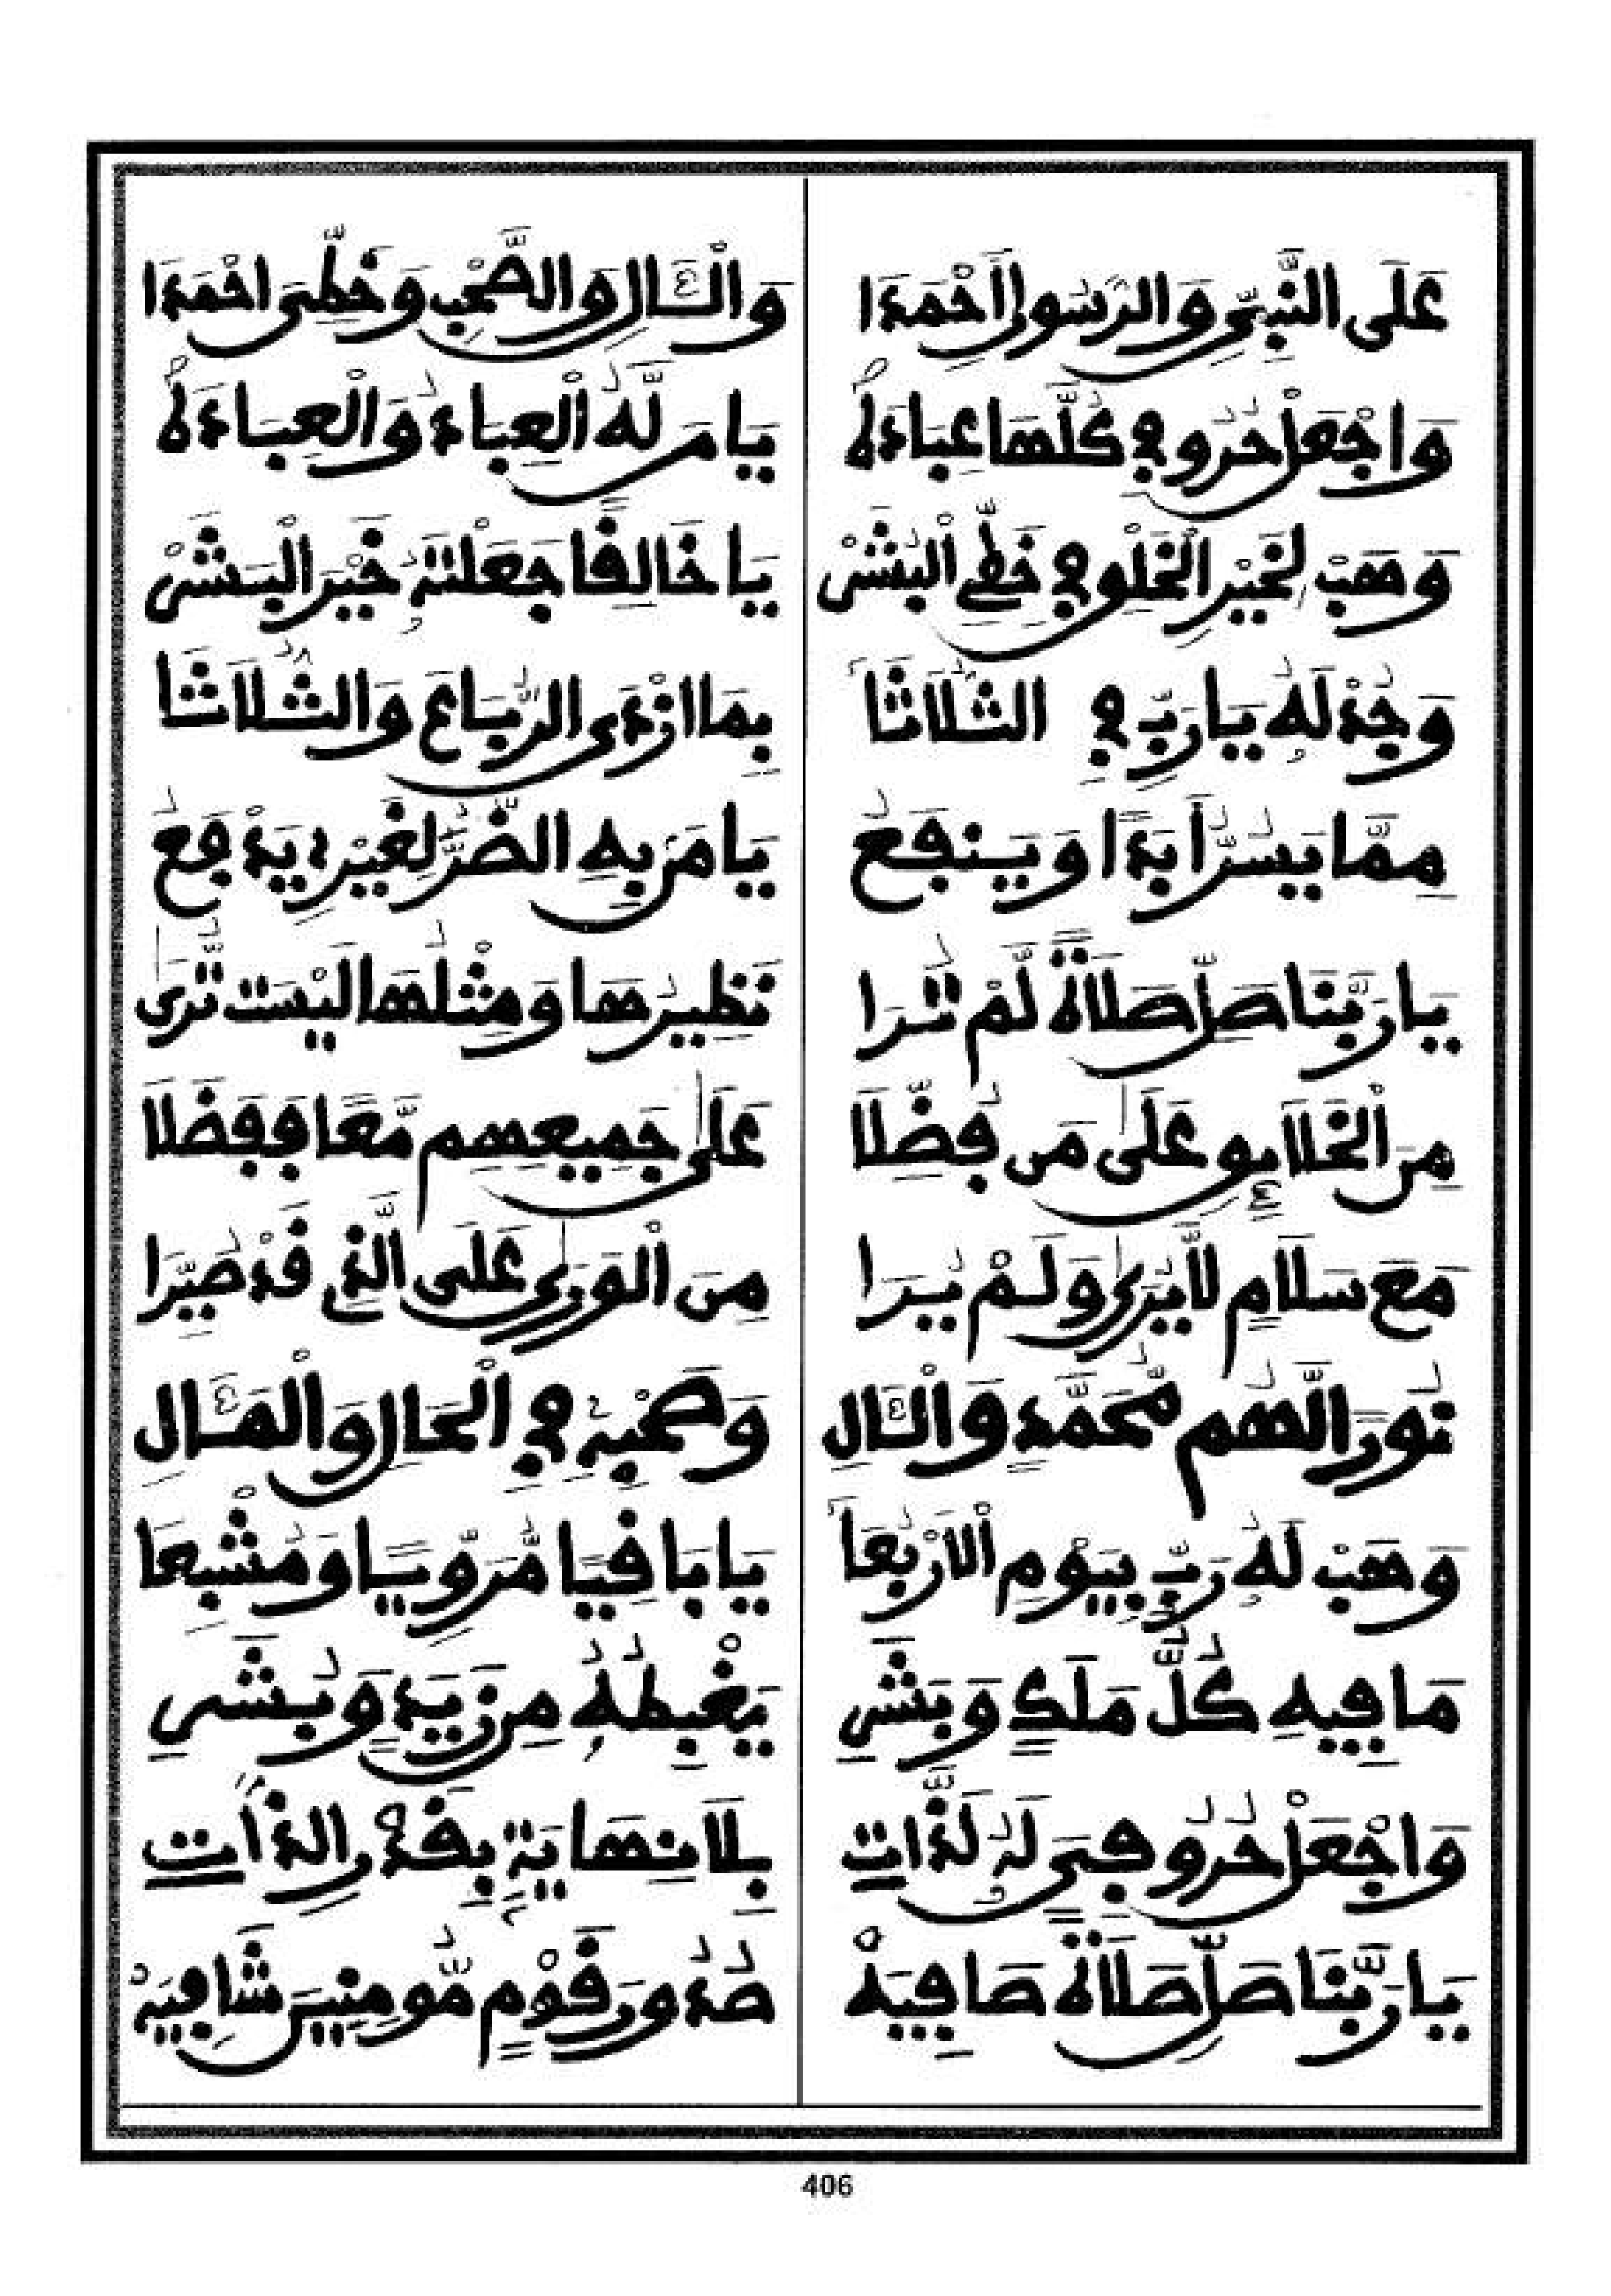 عَلَى النَّبِيِّ وَالرَّسُولِ أَحْمَدَا وَالْـَٔالِ وَالصَّحْبِ وَخَطِّىَ احْمَدَا
وَاجْعَلْ حُرُوفِي كُلَّهَا عِبَادَهْ يَا مَن لَّهُ الْعِبَادُ وَالْعِبَادَهْ
وَهَبْ لِخَيْرِ الْخَلْقِ فِي خَطِّي الْبَشَرْ يَا خَالِقًا جَعَلْتَهُ خَيْرَ الْبَشَرْ
وَجُدْ لَهُ يَا رَبِّ فِي الثُّلَاثَا بِمَا ازْدَرَى الرُّبَاعَ وَالثُّلَاثَا
مِمَّا يَسُرُّ أَبَدًا وَيَنفَعُ يَا مَن بِهِ الضُّرُّ لِغَيْرِي يَدْفَعُ
يَا رَبَّنَا صَلِّ صَلَاةً لَّمْ تُرَا نَظِيرُهَا وَمِثْلُهَا لَيْسَت تُّرَى
مِنَ الْخَلَائِقِ عَلَى مَن فُضِّلَا عَلَى جَمِيعِهِم مَّعًا فَفَضَلَا
مَعَ سَلَامٍ لَّا يُرَى وَلَمْ يُرَا مِنَ الْوَرَى عَلَى الَّذِي قَدْ صُيِّرَا
نُورَ الَّهُم مُّحَمَّدٍ وَالْـَٔالِ وَصَحْبِهِ فِي الْحَالِ وَالْمَـَٔالِ
وَهَبْ لَهُ رَبِّ بِيَوْمِ الْأَرْبُعَا يَا بَاقِيًا مُّرَوِّيًا وَمُشْبِعَا
مَا فِيهِ كُلُّ مَلَكٍ وَبَشَرِ يَغْبِطُهُ مِن زَيَدٍ وَبُشَرِ
وَاجْعَلْ حُرُوفِيَ لَهُ لَذَّاتِ بِلَا نِهَايَةٍ بِقَدْرِ الذَّاتِ
يَا رَبَّنَا صَلِّ صَلَاةً صَافِيَهْ صُدُورَ قَوْمٍ مُّومِنِينَ شَافِيَهْ
406